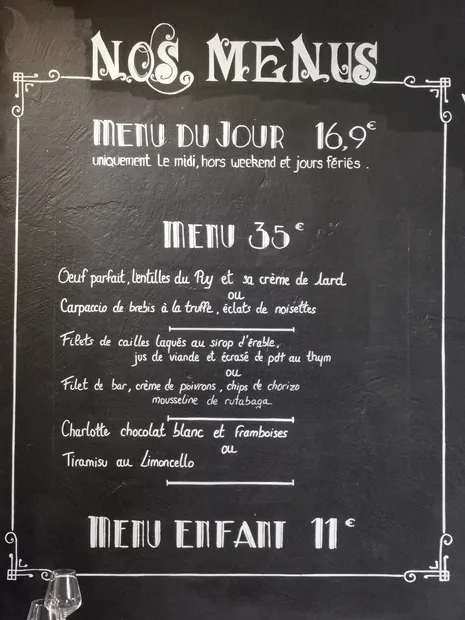 NOS MENUS
MENU DU JOUR 16,9€
uniquement le midi, hors weekend et jours fériés.
MENU 35€
Oeuf parfait, lentilles du Puy et sa crème de lard
ou
Carpaccio de brebis à la truffe, éclats de noisettes
Filets de cailles laqués au sirop d'érable,
jus de viande et écrasé de pdt au thym
ou
Filet de bar, crème de poivrons, chips de chorizo
mousseline de rutabaga
Charlotte chocolat blanc et framboises
ou
Tiramisu au Limoncello
MENU ENFANT 11€